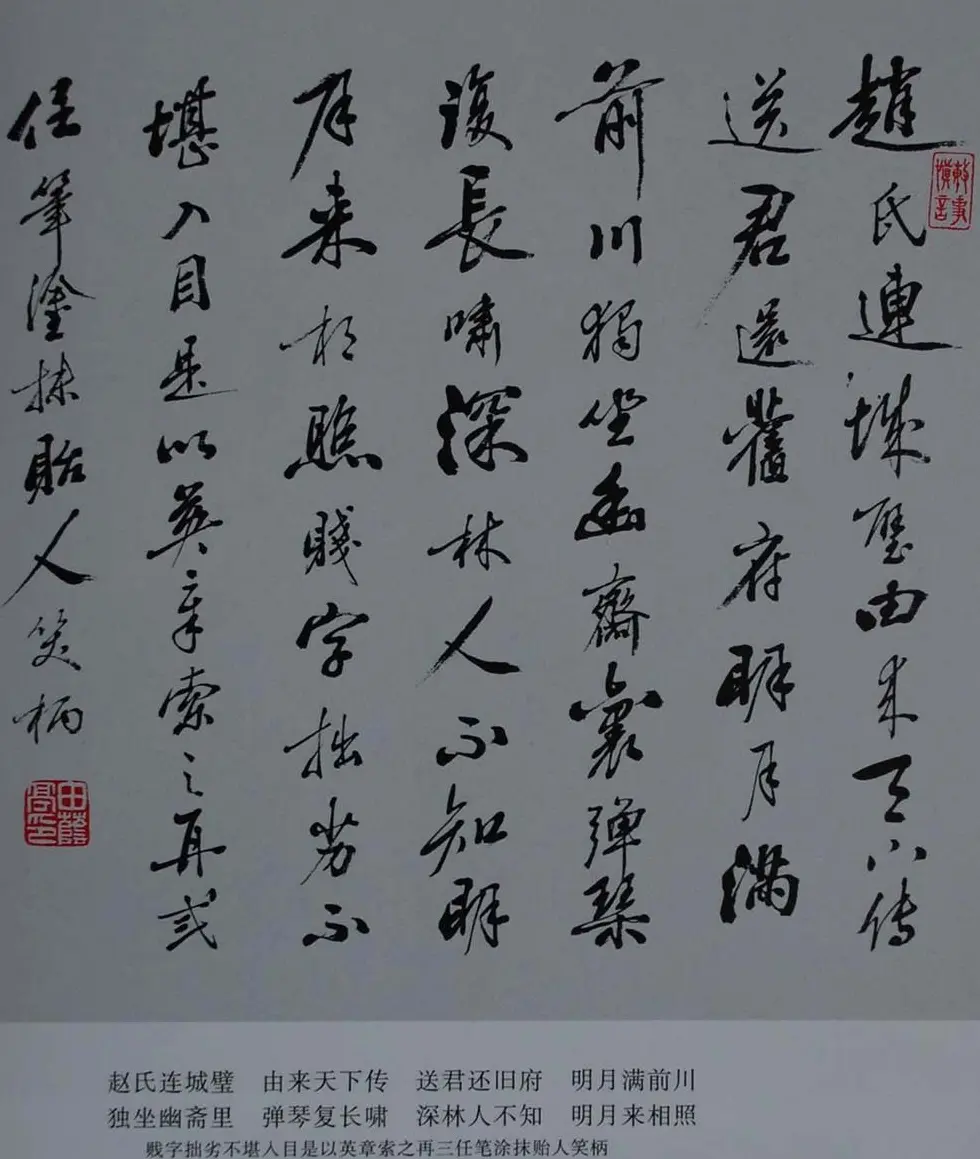 趙氏連城璧由来天下传
敏事慎言
送君還舊府明月滿
前川獨坐幽齋裏彈琴
復長嘯深林人不知明
月来相照賤字拙劣不
堪入目是以英章索之再弎
任筆塗抹貽人笑柄
赵氏连城璧 由来天下传 送君还旧府 明月满前川
独坐幽斋里 弹琴复长啸 深林人不知 明月来相照
贱字拙劣不堪入目是以英章索之再三任笔涂抹贻人笑柄